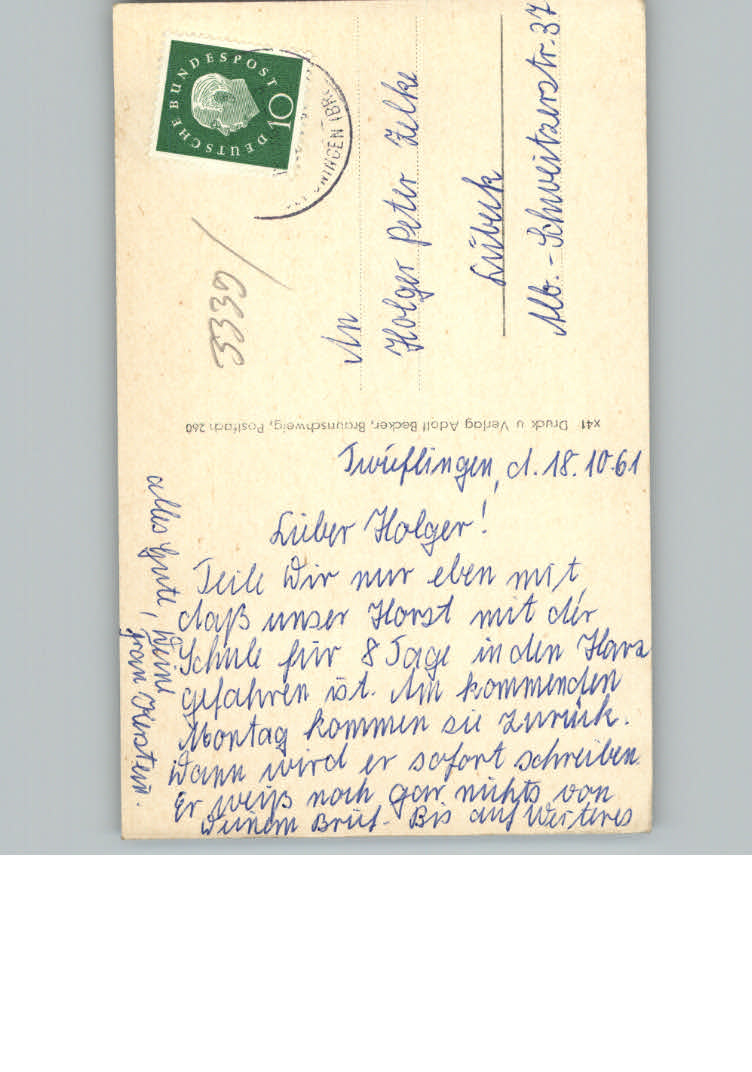 DEUTSCHE BUNDESPOST
10
NINGEN (BR
3339
An
Holger Peter Zelke
Lübeck
Alb.-Schweitzerstr. 37
x41 Druck u Verlag Adolf Becker, Braunschweig, Postfach 260
Twieflingen, d. 18.10.61
Lieber Holger!
Teile Dir nur eben mit
daß unser Horst mit der
Schule für 8 Tage in den Harz
gefahren ist. Am kommenden
Montag kommen sie zurück.
Dann wird er sofort schreiben
Er weiß noch gar nichts von
Deinem Brief. Bis auf Weiteres
alles Gute, Deine
Frau Kirstein.